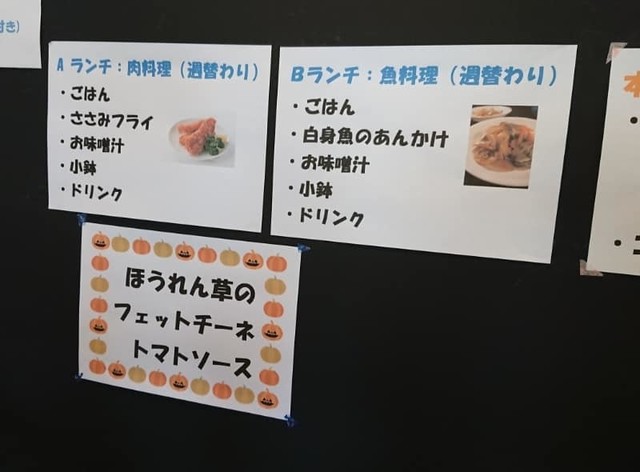 付き)
A ランチ：肉料理（週替わり）
・ごはん
・ささみフライ
・お味噌汁
・小鉢
・ドリンク
Bランチ：魚料理（週替わり）
・ごはん
・白身魚のあんかけ
・お味噌汁
・小鉢
・ドリンク
ほうれん草の
フェットチーネ
トマトソース